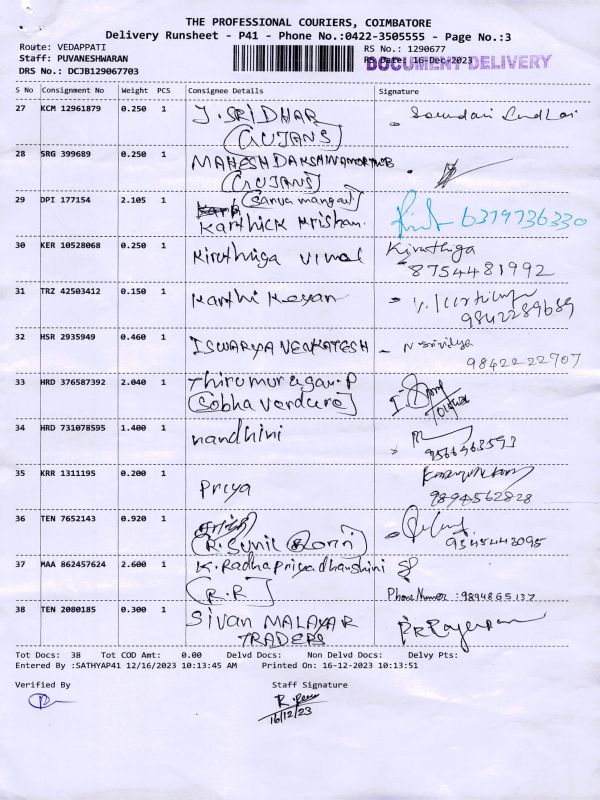 THE PROFESSIONAL COURIERS, COIMBATORE
Delivery Runsheet - P41 - Phone No.:0422-3505555 - Page No.:3
Route: VEDAPPATI RS No.: 1290677
Staff: PUVANESHWARAN RS Date: 16-Dec-2023
DOCUMENT DELIVERY
DRS No.: DCJB129067703
S No Consignment No Weight PCS Consignee Details Signature
27 KCM 12961879 0.250 1 J. SRIDHAR
(GUJANS)
28 SRG 399689 0.250 1 MAHESH DAKSHINAMORTHY
(GUJANS)
29 DPI 177154 2.105 1 (Sarva mangal) 6379736330
Karthick Krishan.
30 KER 10528068 0.250 1 Kiruthiga Vimal Kiruthiga
8754481992
31 TRZ 42503412 0.150 1 Karthi Keyan
9842289689
32 HSR 2935949 0.460 1 ISWARYA VENKATESH - N Srividya
9842222707
33 HRD 376587392 2.040 1 Thirumurugan.P
(Sobha Verdure)
34 HRD 731078595 1.400 1 nandhini
9566463593
35 KRR 1311195 0.200 1 Priya
9894562828
36 TEN 7652143 0.920 1
(R. Sunil
37 MAA 862457624 2.600 1 K. Radhapriyadharshini
(R.R) Phone Number : 9894865137
38 TEN 2080185 0.300 1 SIVAN MALAYAR
TRADERS
Tot Docs: 38 Tot COD Amt: 0.00 Delvd Docs: Non Delvd Docs: Delvy Pts:
Entered By :SATHYAP41 12/16/2023 10:13:45 AM Printed On: 16-12-2023 10:13:51
Verified By Staff Signature
16/12/23